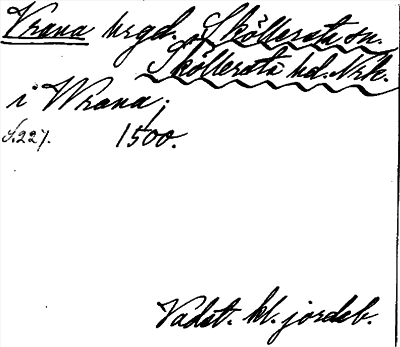 Vrana hrgd. Sköllersta sn.
Sköllersta hd. Nrk.
i Wrana;
S.227. 1500.
Vadst. kl. jordeb.